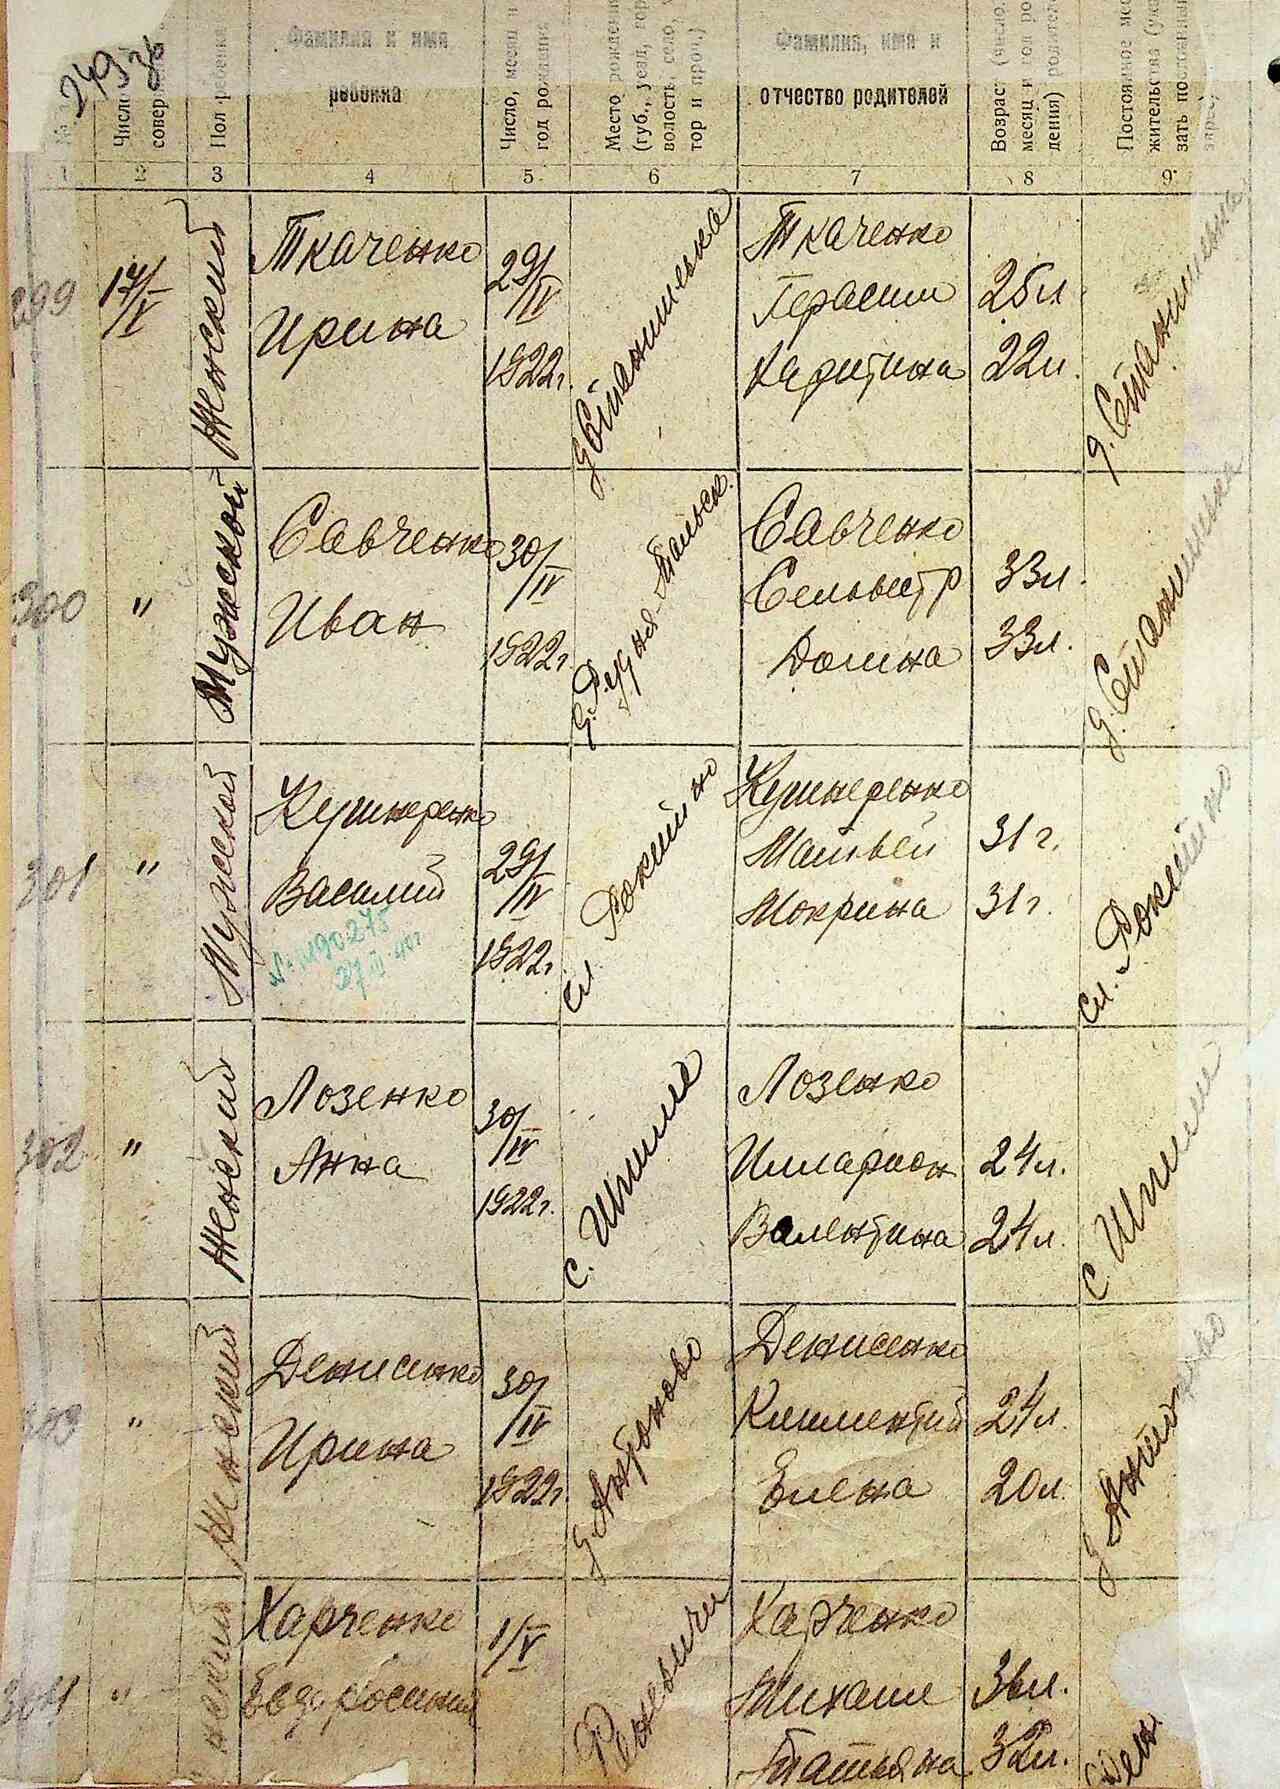 249 зв
Число
совер
Пол ребенка
Фамилия и имя
ребенка
Число, месяц и
год рождения
Место рождения
(губ., уезд, гор
волость, село,
тор и проч.)
Фамилия, имя и
отчество родителей
Возраст (число,
месяц и год ро
дения) родителе
Постоянное мес
жительства (ука
зать последний
адрес)
1 2 3 4 5 6 7 8 9
299
17/V
Женский
Ткаченко
Ирина
29/IV
1922г.
д. Станишовка
Ткаченко
Герасим 25л
Харитина 22л.
д. Станишовка
300
"
Мужской
Савченко
Иван
30/IV
1922г.
д. Рудня-Тальск.
Савченко
Сельвестр 33л.
Домна 33л.
д. Станишовка
301
"
Мужской
Кушнеренко
Василий
27 III 40г
29/IV
1922г.
сл. Рокитно
Кушнеренко
Матвей 31г.
Мокрина 31г.
сл. Рокитно
302
"
Женский
Лозенко
Анна
30/IV
1922г.
с. Шпили
Лозенко
Илларион 24л.
Валентина 24л.
с. Шпили
303
"
Женский
Денисенко
Ирина
30/IV
1922г
д. Антоново
Денисенко
Климентий 24л.
Елена 20л.
д. Антоново
304
"
нский
Харченко
Евдокия
1/V
Феневичи
Харченко
Михаил 36л.
Татьяна 32л.
Фен